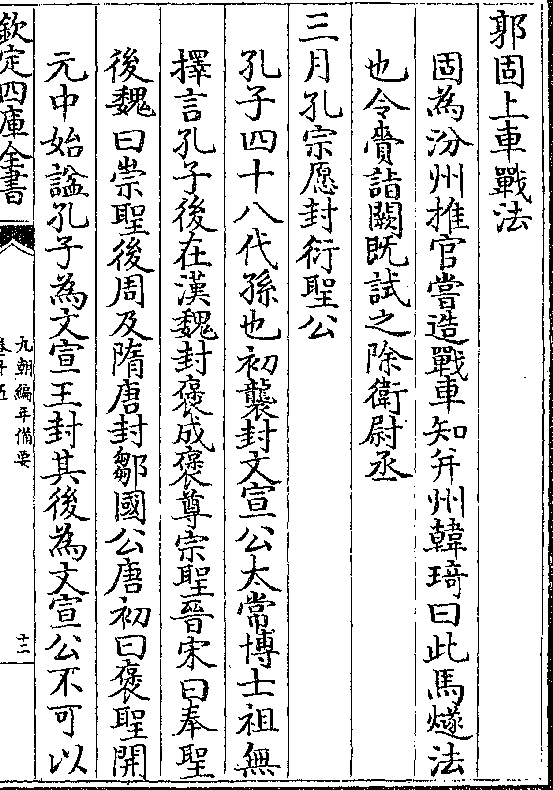 郭固上車戰法
固為汾州推官嘗造戰車知并州韓琦曰此馬燧法
也令賫詣闕既試之除衛尉丞
三月孔宗愿封衍聖公
孔子四十八代孫也初襲封文宣公太常博士祖無
擇言孔子後在漢魏封褒成褒尊宗聖晉宋曰奉聖
後魏曰崇聖後周及隋唐封鄒國公唐初曰褒聖開
元中始諡孔子為文宣王封其後為文宣公不可以
欽定四庫全書
九朝編年備要
十三